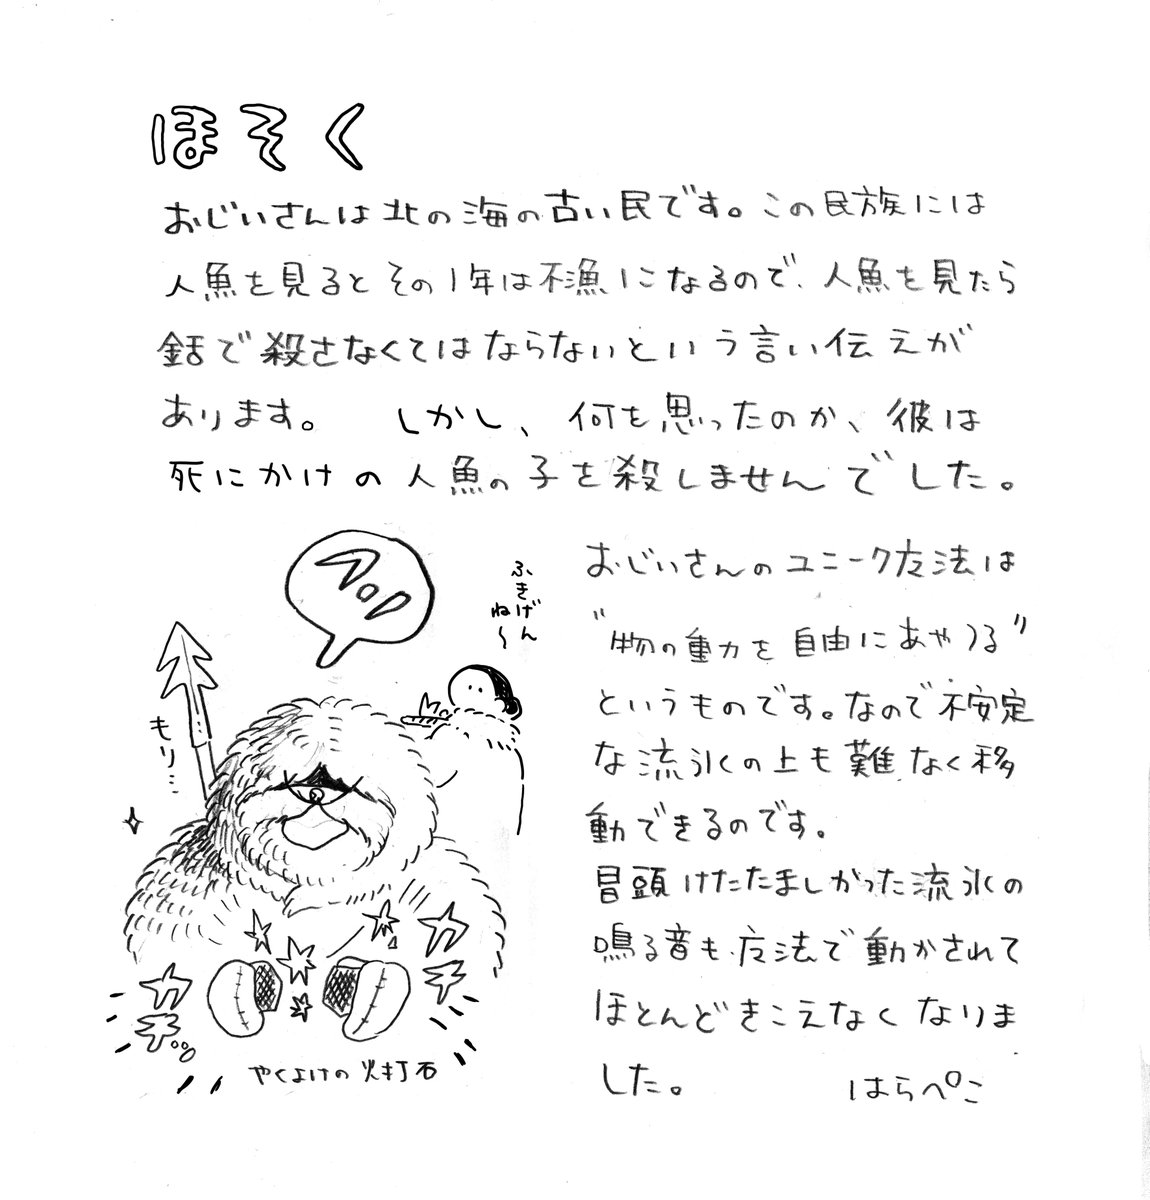 ほそく
おじいさんは北の海の古い民です。この民族には
人魚を見るとその1年は不漁になるので、人魚を見たら
銛で殺さなくてはならないという言い伝えが
あります。 しかし、何を思ったのか、彼は
死にかけの人魚の子を殺しませんでした。
おじいさんのユニーク魔法は
"物の動力を自由にあやつる"
というものです。なので不安定
な流氷の上も難なく移
動できるのです。
冒頭けたたましかった流氷の
鳴る音も魔法で動かされて
ほとんどきこえなくなりま
した。 はらぺこ
ふきげん
ね〜
もり…
カチ
カチ
やくよけの火打石